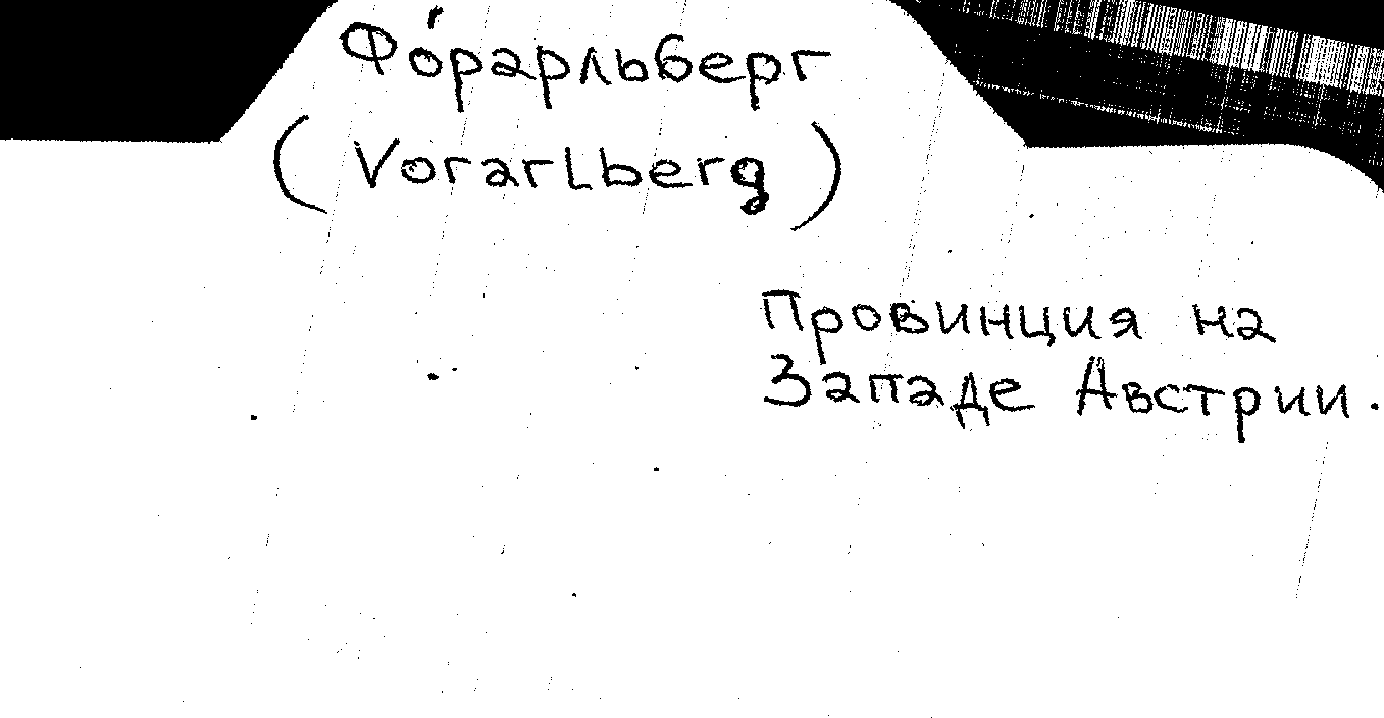 Фо́рарльберг
(Vorarlberg)
Провинция на
Западе Австрии.